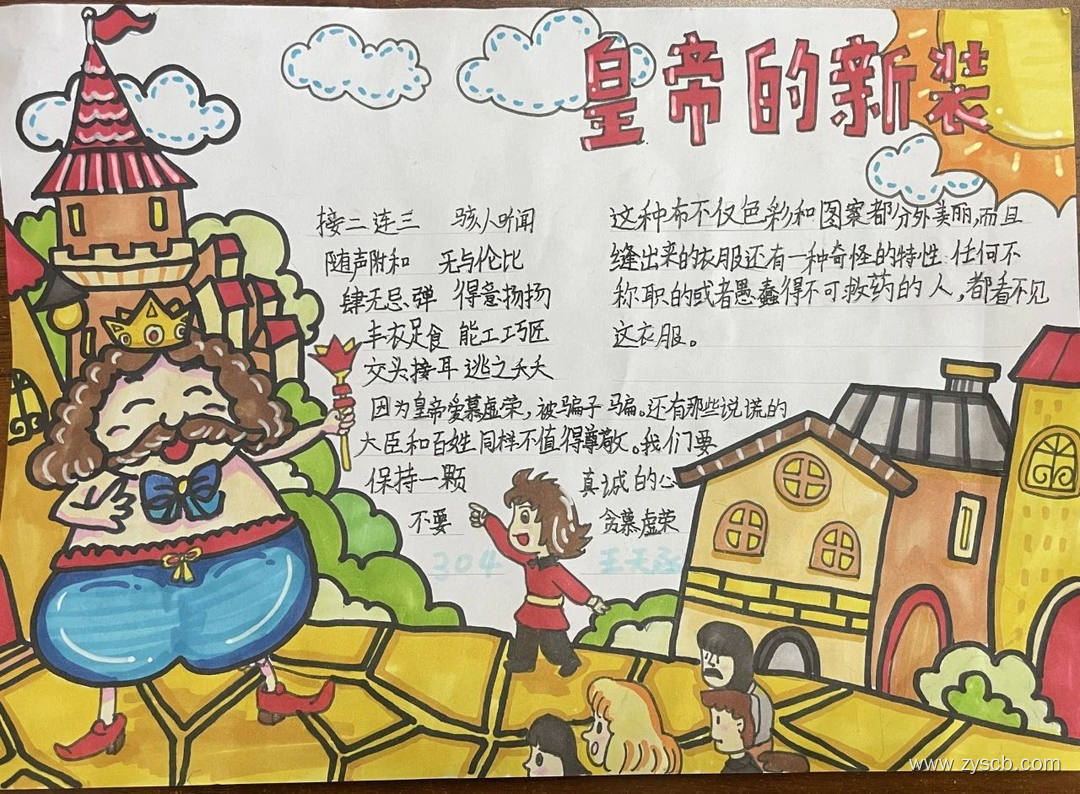 皇帝的新装
接二连三 骇人听闻
随声附和 无与伦比
肆无忌弹 得意扬扬
丰衣足食 能工巧匠
交头接耳 逃之夭夭
因为皇帝爱慕虚荣，被骗子骗。还有那些说谎的
大臣和百姓同样不值得尊敬。我们要
保持一颗 真诚的心
不要 贪慕虚荣
304
这种布不仅色彩和图案都分外美丽，而且
缝出来的衣服还有一种奇怪的特性：任何不
称职的或者愚蠢得不可救药的人，都看不见
这衣服。
www.zyscb.com